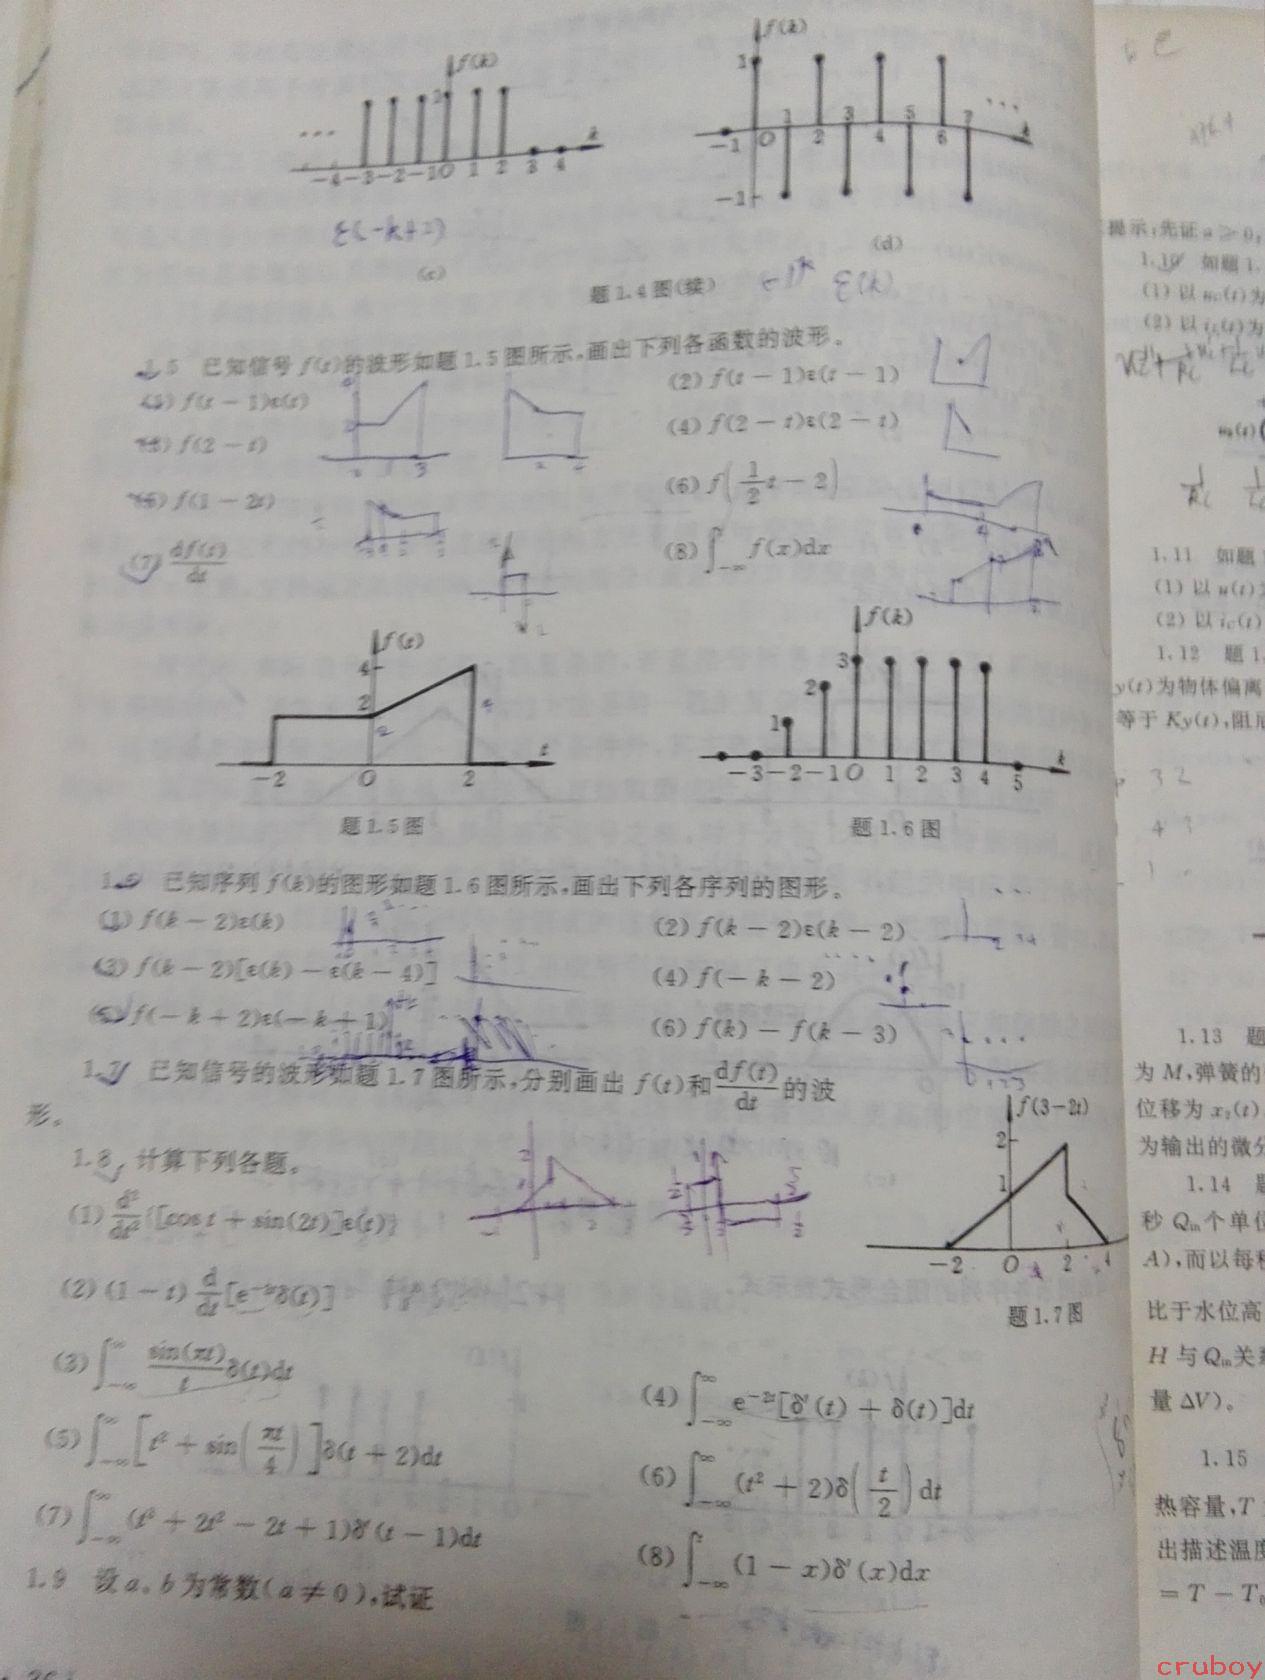 f(k)
1
...
-4 -3 -2 -1 0 1 2 3 4 k
ε(-k+2)
(c)
f(k)
1
...
-1 0 1 2 3 4 5 6 7 k
-1
(d)
题1.4图(续)
ε(k)
1.5 已知信号 f(t)的波形如题1.5图所示,画出下列各函数的波形。
(1) f(t-1)ε(t) (2) f(t-1)ε(t-1)
(3) f(2-t) (4) f(2-t)ε(2-t)
(5) f(1-2t) (6) f(1/2 t-2)
(7) df(t)/dt (8) ∫_{-∞}^{t} f(x)dx
f(t)
4
2
-2 0 2 t
题1.5图
f(k)
3
2
1
-3 -2 -1 0 1 2 3 4 5 k
题1.6图
1.6 已知序列 f(k)的图形如题1.6图所示,画出下列各序列的图形。
(1) f(k-2)ε(k) (2) f(k-2)ε(k-2)
(3) f(k-2)[ε(k)-ε(k-4)] (4) f(-k-2)
(5) f(-k+2)ε(-k+1) (6) f(k)-f(k-3)
1.7 已知信号的波形如题1.7图所示,分别画出 f(t)和 df(t)/dt 的波
形。
f(3-2t)
2
1
-2 0 2 4
题1.7图
1.8 计算下列各题。
(1) d²/dt² {[cost+sin(2t)]ε(t)}
(2) (1-t) d/dt [e^{-t}δ(t)]
(3) ∫_{-∞}^{∞} sin(πt)/t δ(t)dt
(4) ∫_{-∞}^{∞} e^{-2t}[δ′(t)+δ(t)]dt
(5) ∫_{-∞}^{∞} [t²+sin(πt/4)]δ(t+2)dt
(6) ∫_{-∞}^{∞} (t²+2)δ(t/2)dt
(7) ∫_{-∞}^{∞} (t³+2t²-2t+1)δ′(t-1)dt
(8) ∫_{-∞}^{t} (1-x)δ′(x)dx
1.9 设 a、b 为常数(a≠0),试证
提示:先证 a>0,
1.10 如题1.
(1) 以 u_C(t)为
(2) 以 i_L(t)为
1.11 如题
(1) 以 u(t)为
(2) 以 i_C(t)
1.12 题1.
y(t)为物体偏离
等于 Ky(t),阻尼
1.13 题
为 M,弹簧的
位移为 x₂(t)
为输出的微分
1.14 题
秒 Q_in个单位
A),而以每秒
比于水位高
H 与 Q_in关
量 ΔV)。
1.15
热容量,T
出描述温度
= T - T₀
cruboy